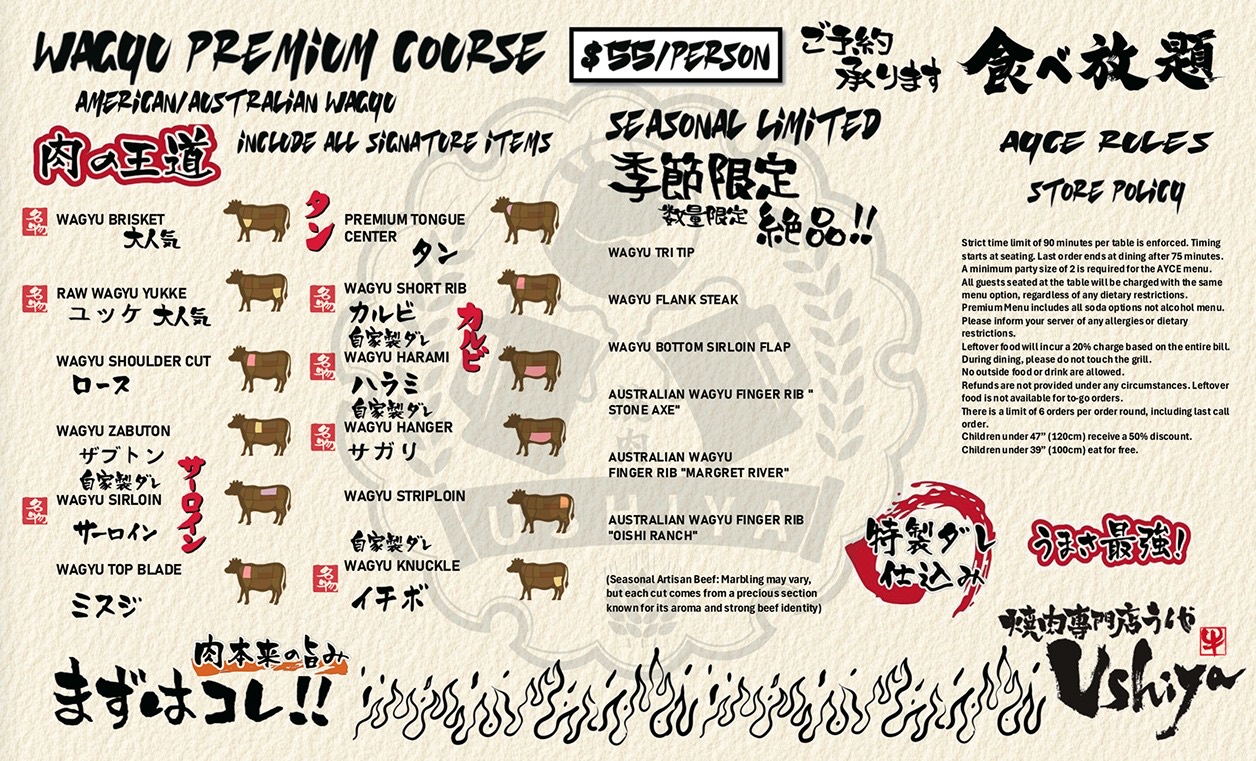 WAGYU PREMIUM COURSE
$55/PERSON
ご予約
承ります
食べ放題
AMERICAN/AUSTRALIAN WAGYU
肉の王道
INCLUDE ALL SIGNATURE ITEMS
名物
WAGYU BRISKET
大人気
名物
RAW WAGYU YUKKE
ユッケ 大人気
WAGYU SHOULDER CUT
ロース
WAGYU ZABUTON
ザブトン
自家製ダレ
サーロイン
名物
WAGYU SIRLOIN
サーロイン
WAGYU TOP BLADE
ミスジ
タン
PREMIUM TONGUE
CENTER
タン
名物
WAGYU SHORT RIB
カルビ
カルビ
自家製ダレ
名物
WAGYU HARAMI
ハラミ
自家製ダレ
名物
WAGYU HANGER
サガリ
WAGYU STRIPLOIN
自家製ダレ
名物
WAGYU KNUCKLE
イチボ
SEASONAL LIMITED
季節限定
数量限定 絶品!!
WAGYU TRI TIP
WAGYU FLANK STEAK
WAGYU BOTTOM SIRLOIN FLAP
AUSTRALIAN WAGYU FINGER RIB "
STONE AXE"
AUSTRALIAN WAGYU
FINGER RIB "MARGRET RIVER"
AUSTRALIAN WAGYU FINGER RIB
"OISHI RANCH"
(Seasonal Artisan Beef: Marbling may vary,
but each cut comes from a precious section
known for its aroma and strong beef identity)
焼肉
USHIYA
AYCE RULES
STORE POLICY
Strict time limit of 90 minutes per table is enforced. Timing
starts at seating. Last order ends at dining after 75 minutes.
A minimum party size of 2 is required for the AYCE menu.
All guests seated at the table will be charged with the same
menu option, regardless of any dietary restrictions.
Premium Menu includes all soda options not alcohol menu.
Please inform your server of any allergies or dietary
restrictions.
Leftover food will incur a 20% charge based on the entire bill.
During dining, please do not touch the grill.
No outside food or drink are allowed.
Refunds are not provided under any circumstances. Leftover
food is not available for to-go orders.
There is a limit of 6 orders per order round, including last call
order.
Children under 47” (120cm) receive a 50% discount.
Children under 39” (100cm) eat for free.
特製ダレ
仕込み
うまさ最強!
肉本来の旨み
まずはコレ!!
焼肉専門店うしや
牛
Ushiya